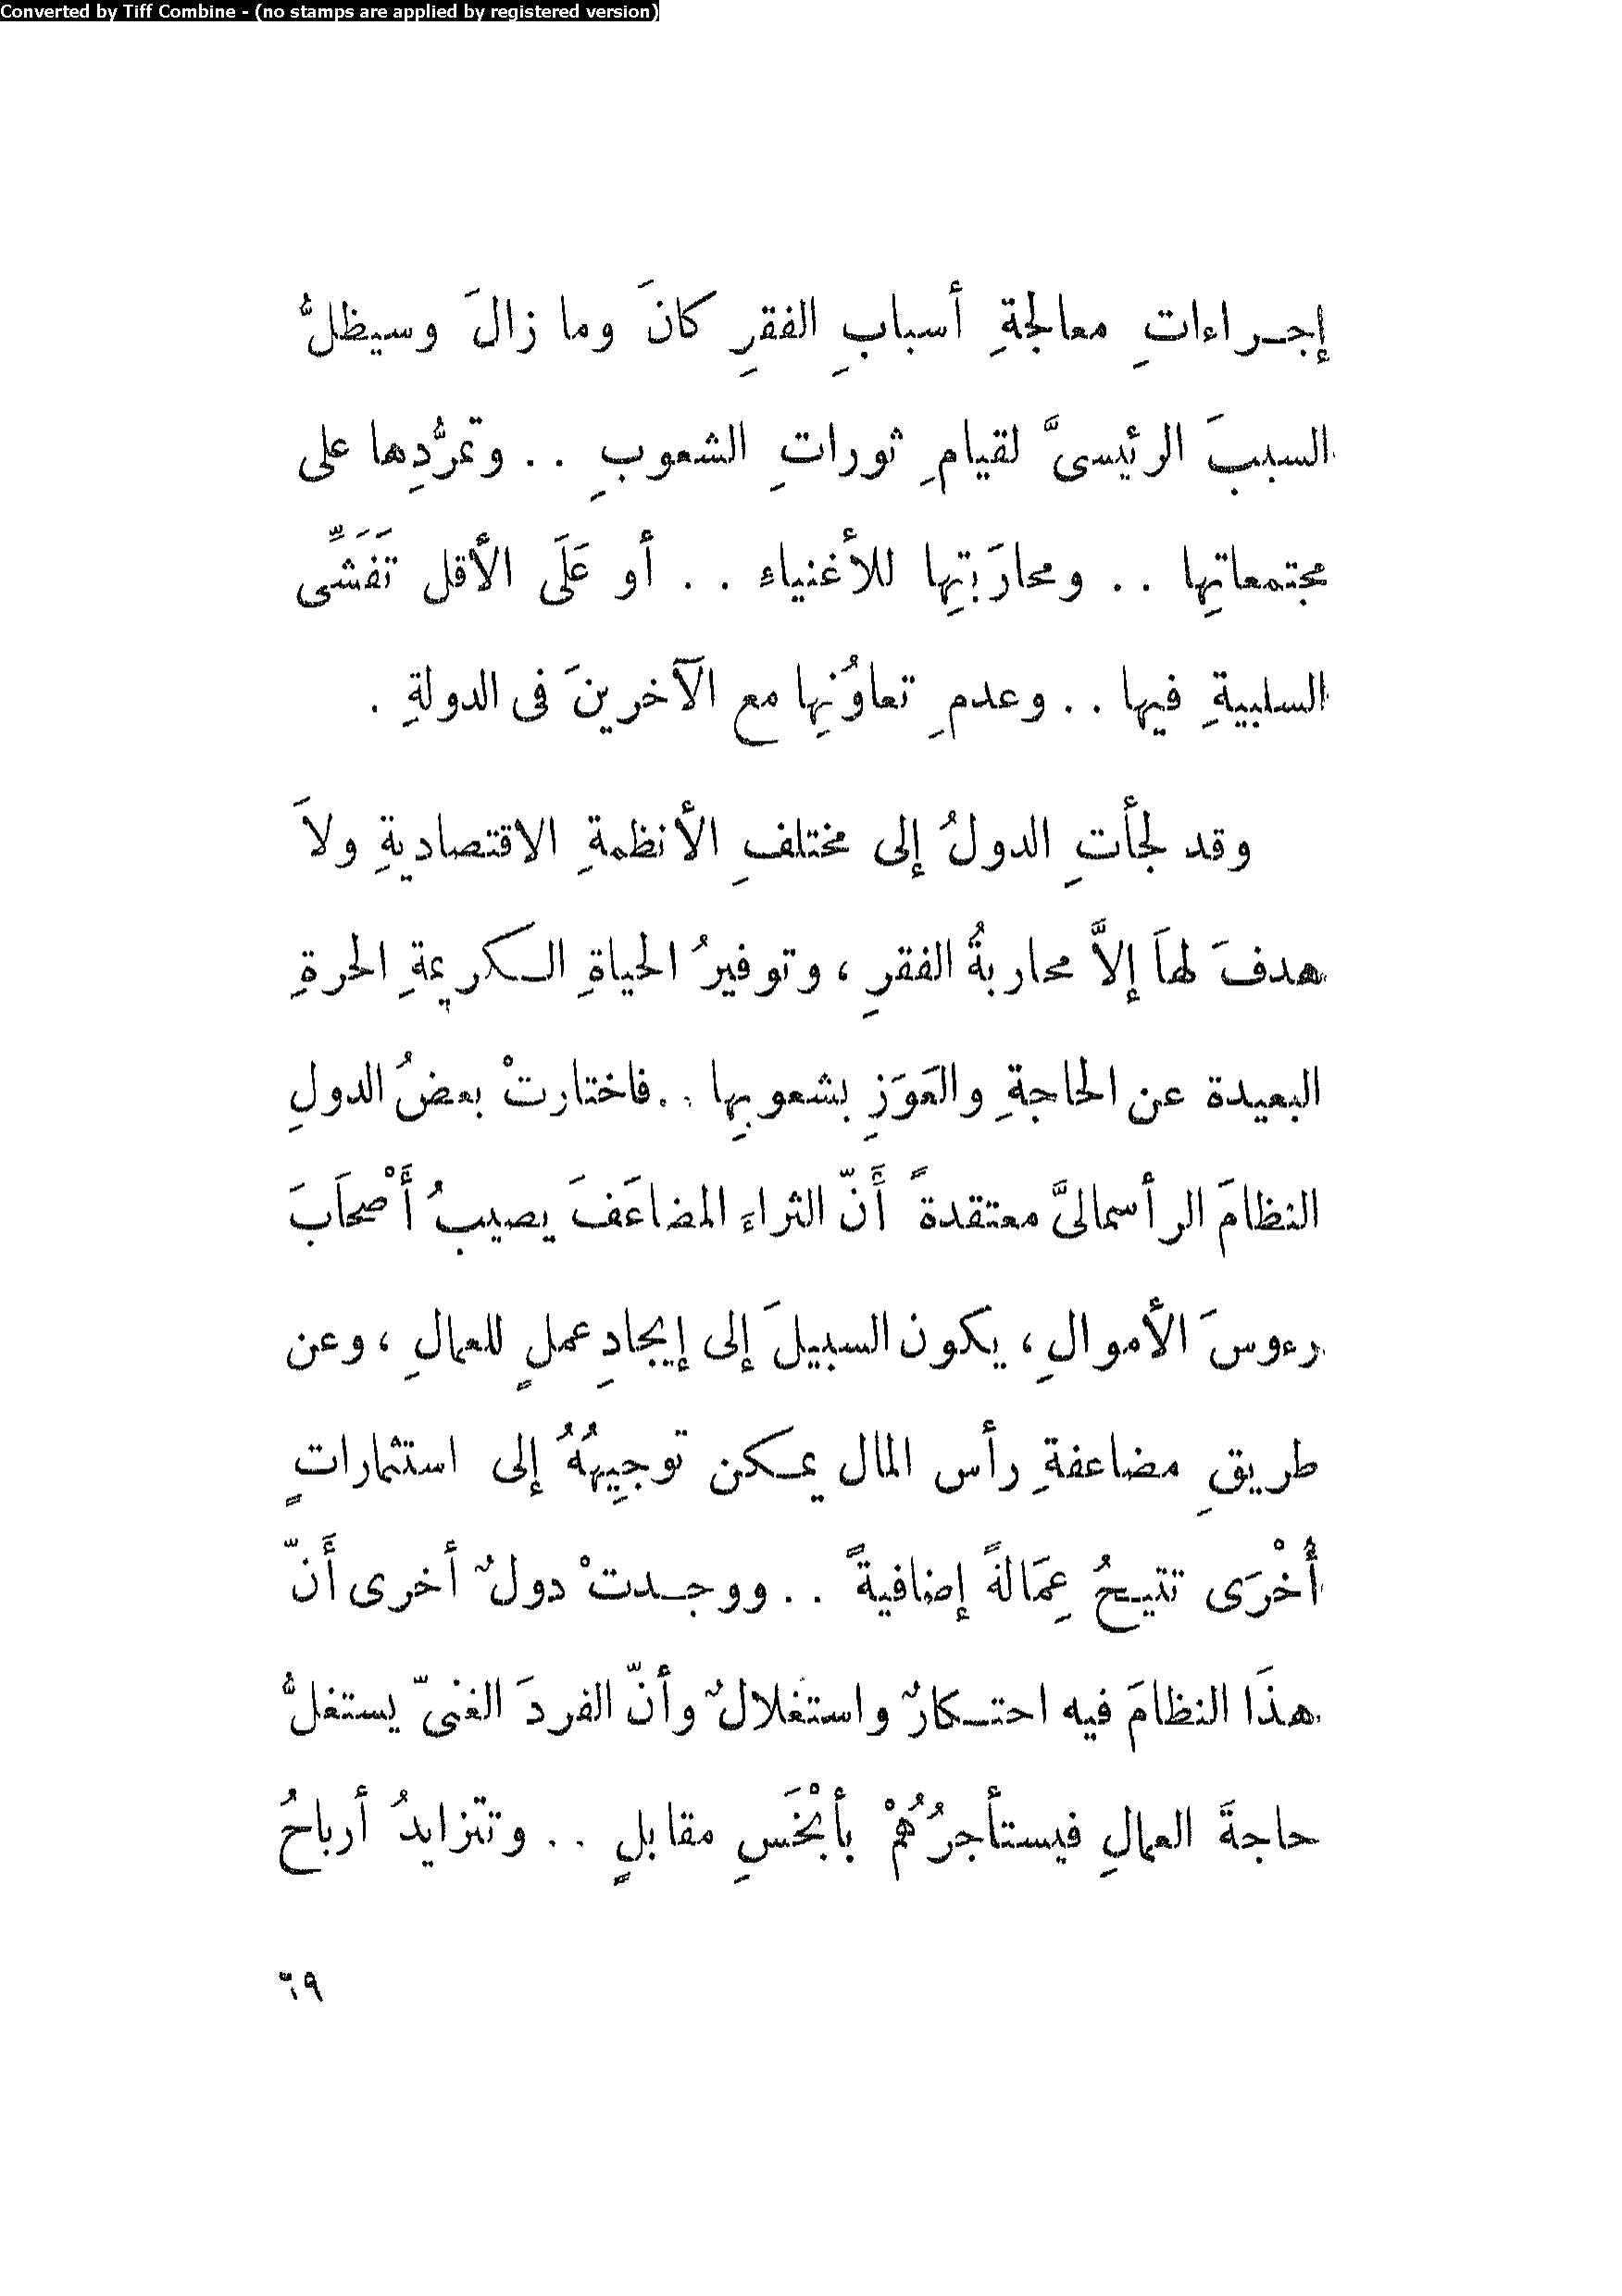 Converted by Tiff Combine - (no stamps are applied by registered version)
إجراءاتِ معالجةِ أسبابِ الفقرِ كانَ وما زالَ وسيظلُّ
السببَ الرئيسىَّ لقيامِ ثوراتِ الشعوبِ . . وتمرُّدِها على
مجتمعاتِها . . ومحارَبتِها للأغنياء . . أو عَلَى الأقل تَفَشِّى
السلبيةِ فيها . . وعدمِ تعاوُنِها مع الآخرينَ فى الدولةِ .
وقد لجأتِ الدولُ إلى مختلفِ الأنظمةِ الاقتصاديةِ ولاَ
هدفَ لهاَ إلاَّ محاربةُ الفقرِ ، وتوفيرُ الحياةِ الكريمةِ الحرةِ
البعيدة عن الحاجةِ والعَوَزِ بشعوبِها . . فاختارتْ بعضُ الدولِ
النظامَ الرأسمالىَّ معتقدةً أَنّ الثراءَ المضاعَفَ يصيبُ أَصْحاَبَ
رءوسَ الأموالِ ، يكون السبيلَ إلى إيجادِ عملٍ للعمالِ ، وعن
طريقِ مضاعفةِ رأس المال يمكن توجيِهُهُ إلى استثماراتٍ
أُخْرَى تتيحُ عِمَالةً إضافيةً . . ووجدتْ دولٌ أخرى أَنّ
هذَا النظامَ فيه احتكارٌ واستغلالٌ وأنّ الفردَ الغنىّ يستغلُّ
حاجةَ العمالِ فيستأجرُهُمْ بأبْخَسِ مقابلٍ . . وتتزايدُ أرباحُ
٦٩